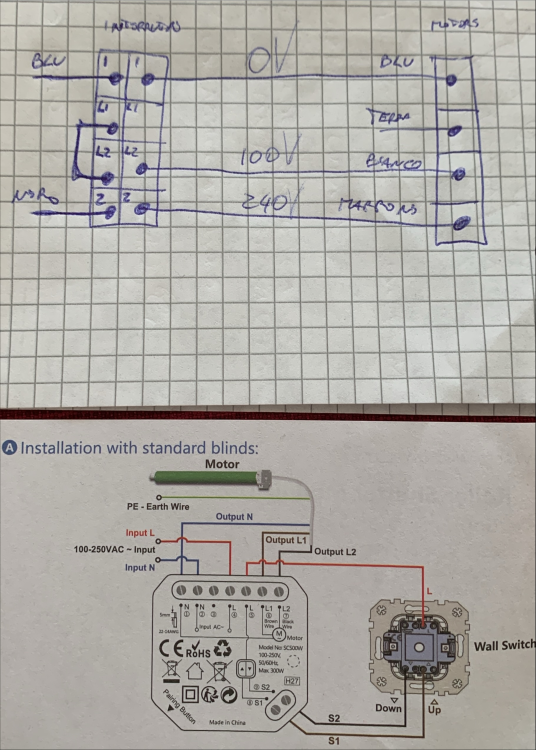 MOTORS
BLU
0V
BLU
1 1
TERRA
L1 L1
100V
BIANCO
L2 L2
NERO
240V
MARRONE
2 2
A Installation with standard blinds:
Motor
PE - Earth Wire
Output N
Input L
Output L1
100-250VAC ~ Input
Output L2
Input N
L
N N L L L1 L2
① ② ③ ④ ⑤ ⑥ ⑦
5mm
22-24AWG
Input AC~
Brown Wire
Black Wire
M
Motor
CE RoHS
Model No: SCS00W
100-250V,
50/60Hz,
Max. 300W
H27
⑨ S2
⑧ S1
Pairing Button
Made in China
Wall Switch
Down
Up
S2
S1